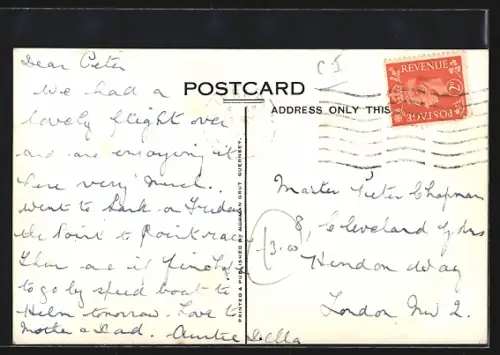 Dear Peter
We had a
lovely flight over
and are enjoying it
here very much.
went to Sark on Friday
the Point to Point race
Thur and if fine
to go by speed boat to
Helm tomorrow. Love to
Mother & Dad. Auntie Della
C.I
POSTCARD
ADDRESS ONLY THIS
REVENUE
POSTAGE
PRINTED & PUBLISHED BY NORMAN GRUT GUERNSEY.
3.00
Master Peter Chapman
8, Cleveland Gdns
Hendon Way
London NW 2.